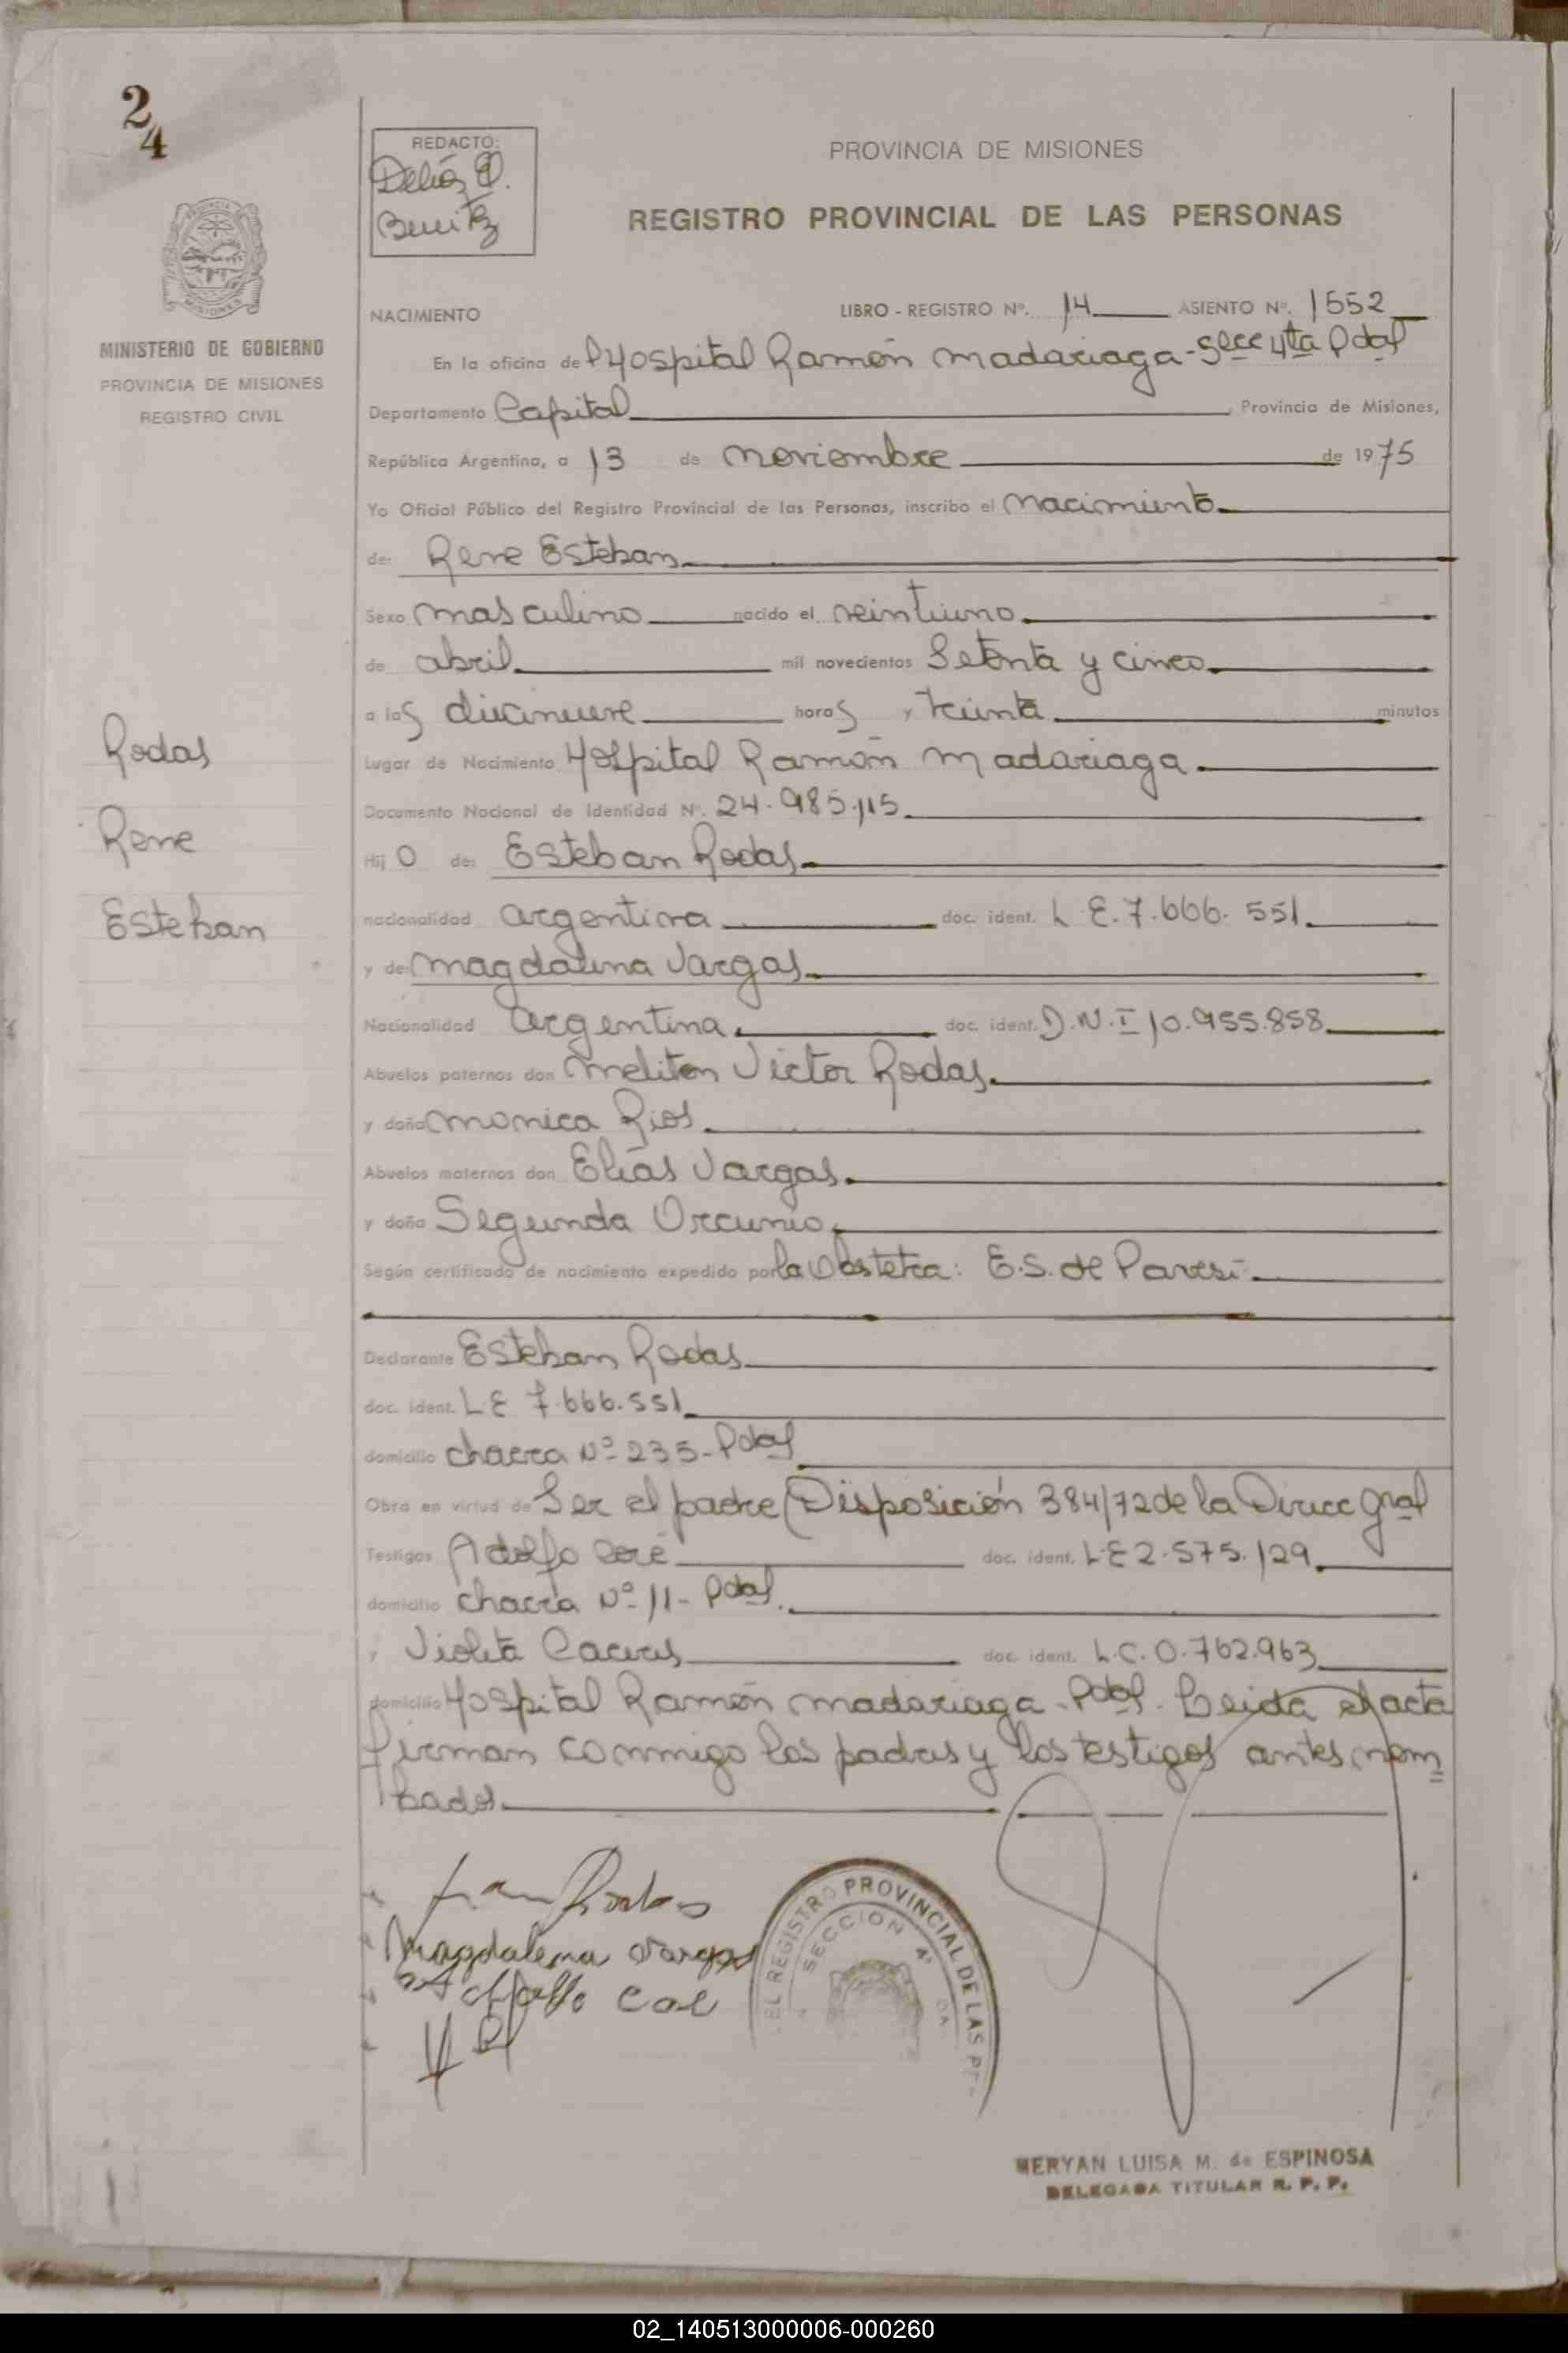 2
4
REDACTO:
Benitz
PROVINCIA DE MISIONES
REGISTRO PROVINCIAL DE LAS PERSONAS
MINISTERIO DE GOBIERNO
PROVINCIA DE MISIONES
REGISTRO CIVIL
NACIMIENTO LIBRO - REGISTRO Nº. 14 ASIENTO Nº. 1552
En la oficina de Hospital Ramón Madariaga - Secc 4ta Pdas
Departamento Capital, Provincia de Misiones,
República Argentina, a 13 de Noviembre de 1975
Yo Oficial Público del Registro Provincial de las Personas, inscribo el Nacimiento
de: Rene Esteban
Sexo masculino nacido el veintiuno
de abril mil novecientos Setenta y cinco
a las diecinueve horas y treinta minutos
Lugar de Nacimiento Hospital Ramón Madariaga
Documento Nacional de Identidad Nº. 24.985.115
Hijo de: Esteban Rodas
nacionalidad argentina doc. ident. L.E. 7.666.551
y de: Magdalena Vargas
Nacionalidad argentina doc. ident. D.N.I 10.955.858
Abuelos paternos don Meliton Victor Rodas
y doña Monica Rios
Abuelos maternos don Elías Vargas
y doña Segunda
Según certificado de nacimiento expedido por la Obstetra: E.S. de Pavesi
Declarante Esteban Rodas
doc. ident. L.E 7.666.551
domicilio chacra Nº 235 - Pdas
Obra en virtud de Ser el padre (Disposición 384/72 de la Direcc Gral
Testigos Adolfo doc. ident. L.E 2.575.129
domicilio chacra Nº 11 - Pdas.
y Violeta Caceres doc. ident. L.C. 0.762.963
domicilio Hospital Ramón Madariaga - Pdas. Leida el acta
firman conmigo los padres y los testigos antes nom
bados
Rodas
Rene
Esteban
Rodas
Magdalena Vargas
EL REGISTRO PROVINCIAL DE LAS PE
SECCION 4ª
MERYAN LUISA M. de ESPINOSA
DELEGADA TITULAR R. P. P.
02_140513000006-000260